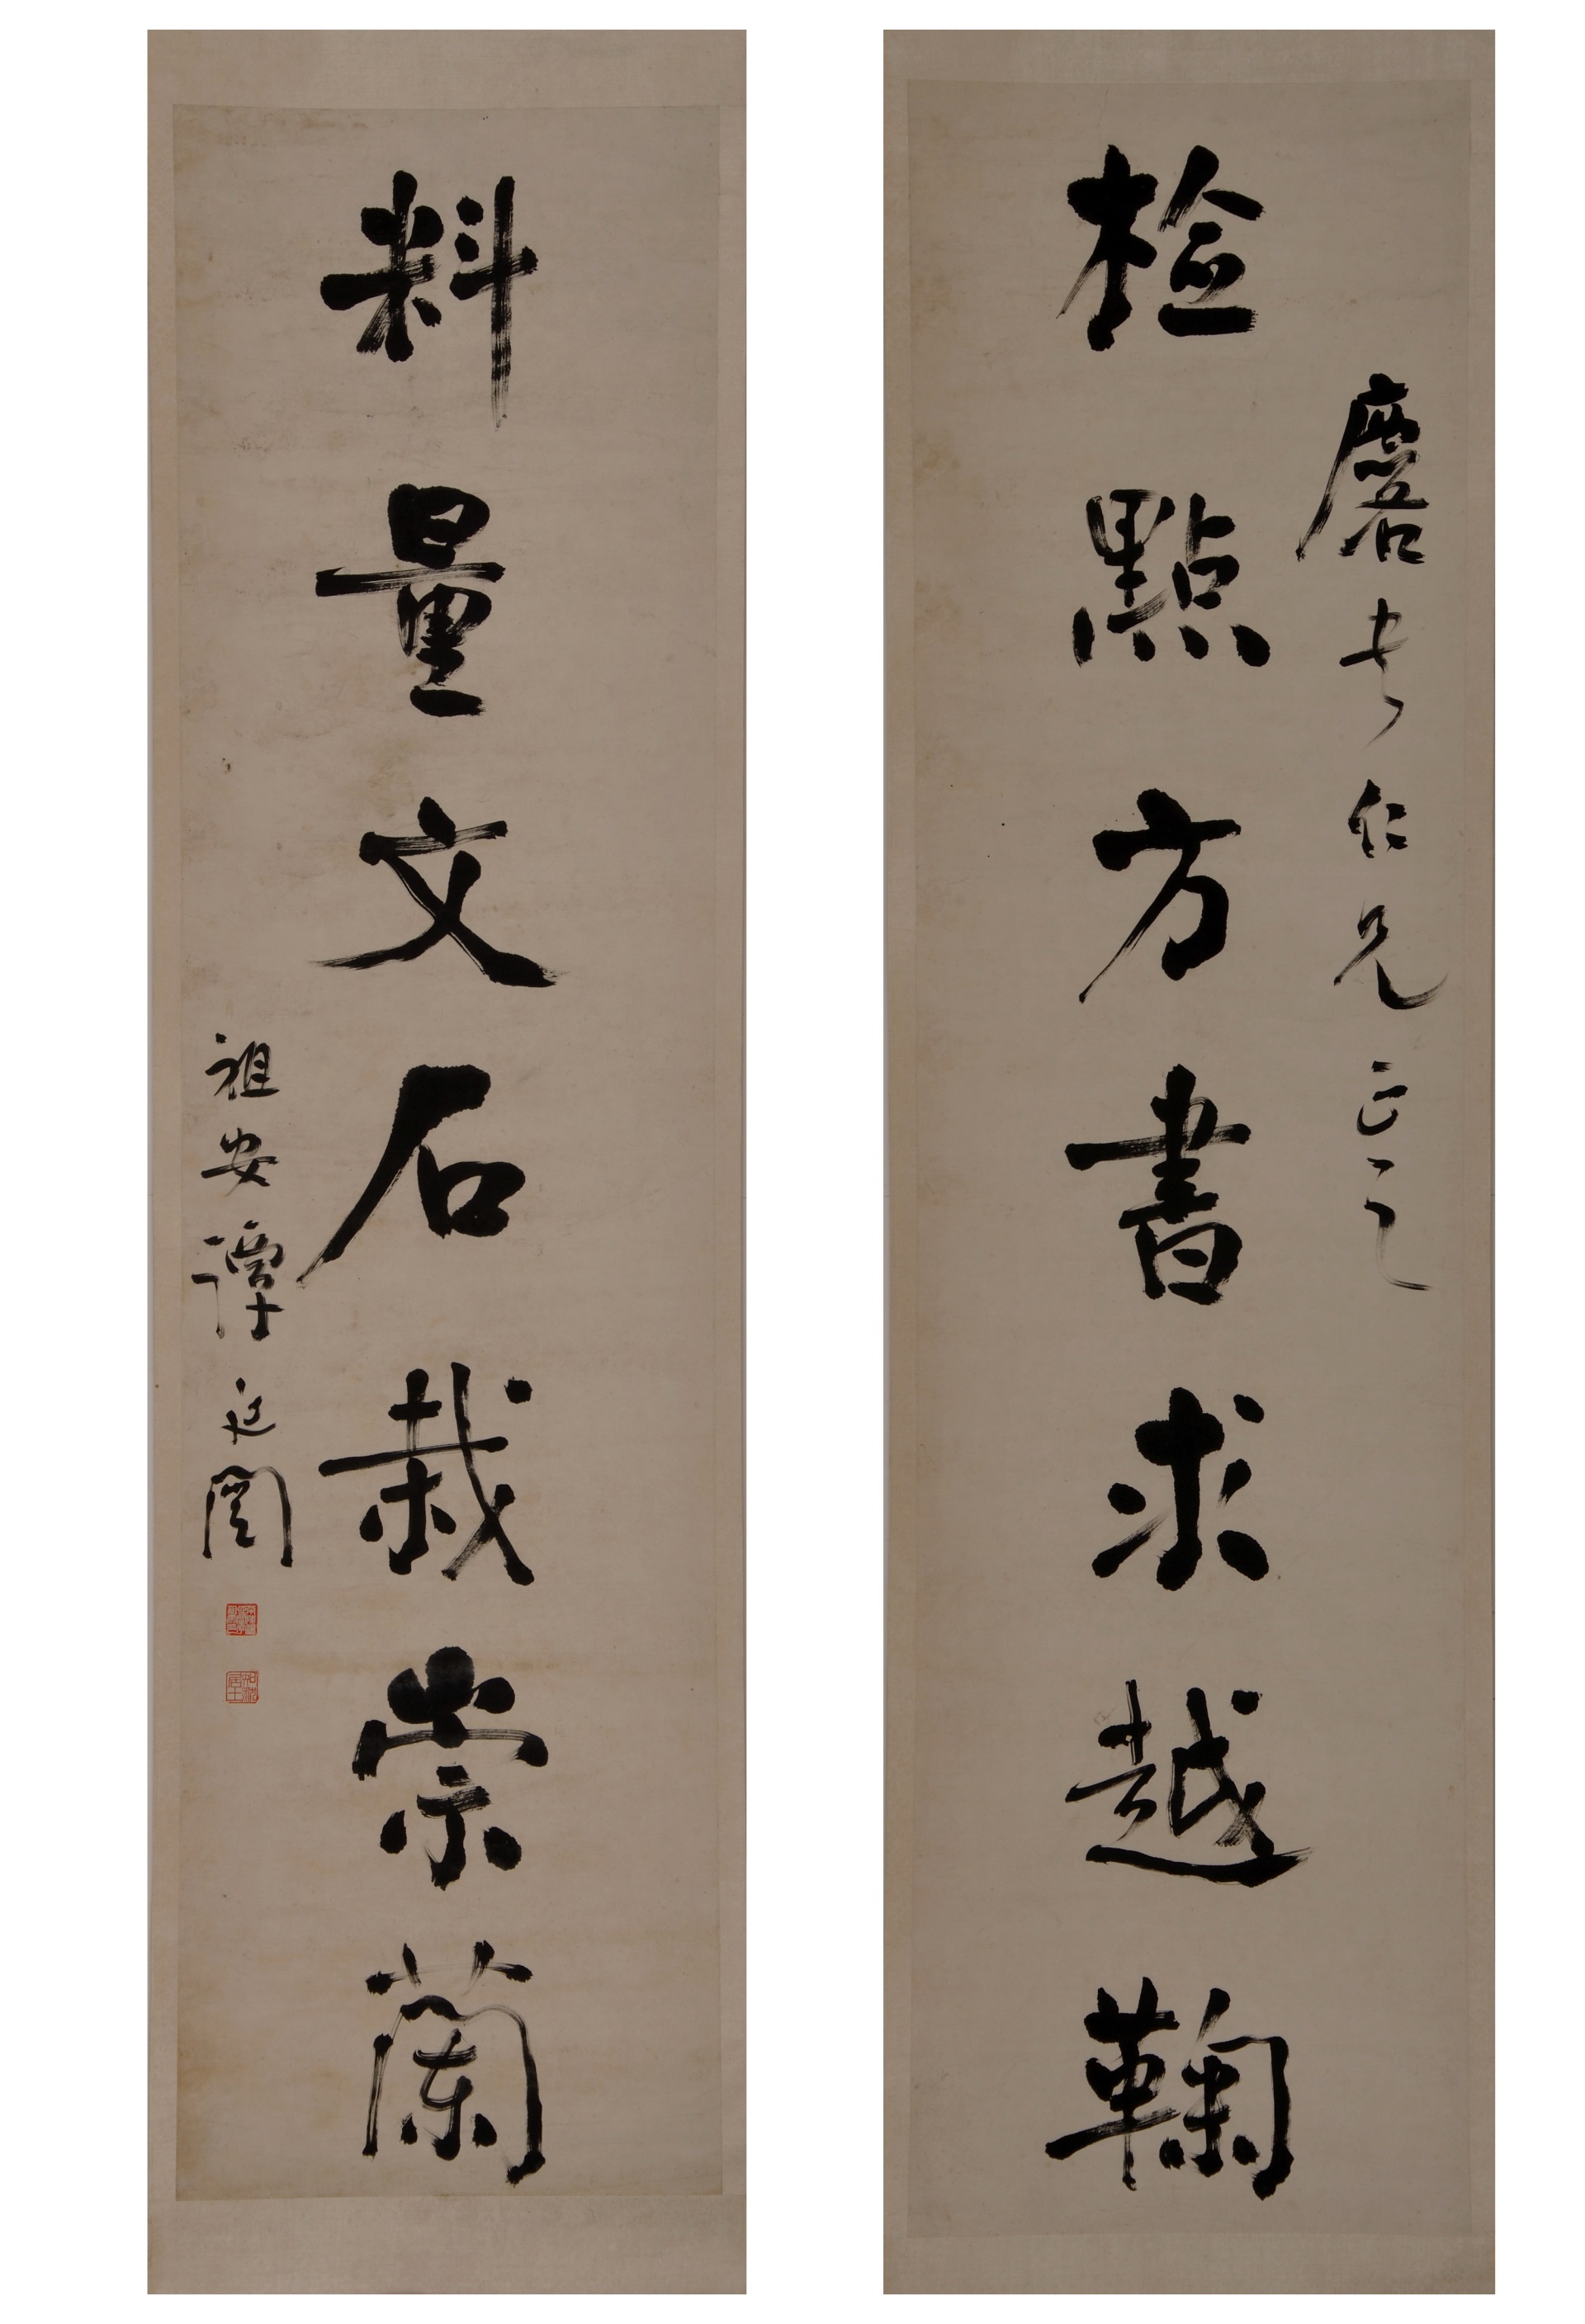 仁兄正之
檢點方書求越鞠
料量文石栽崇蘭
祖安譚延闓